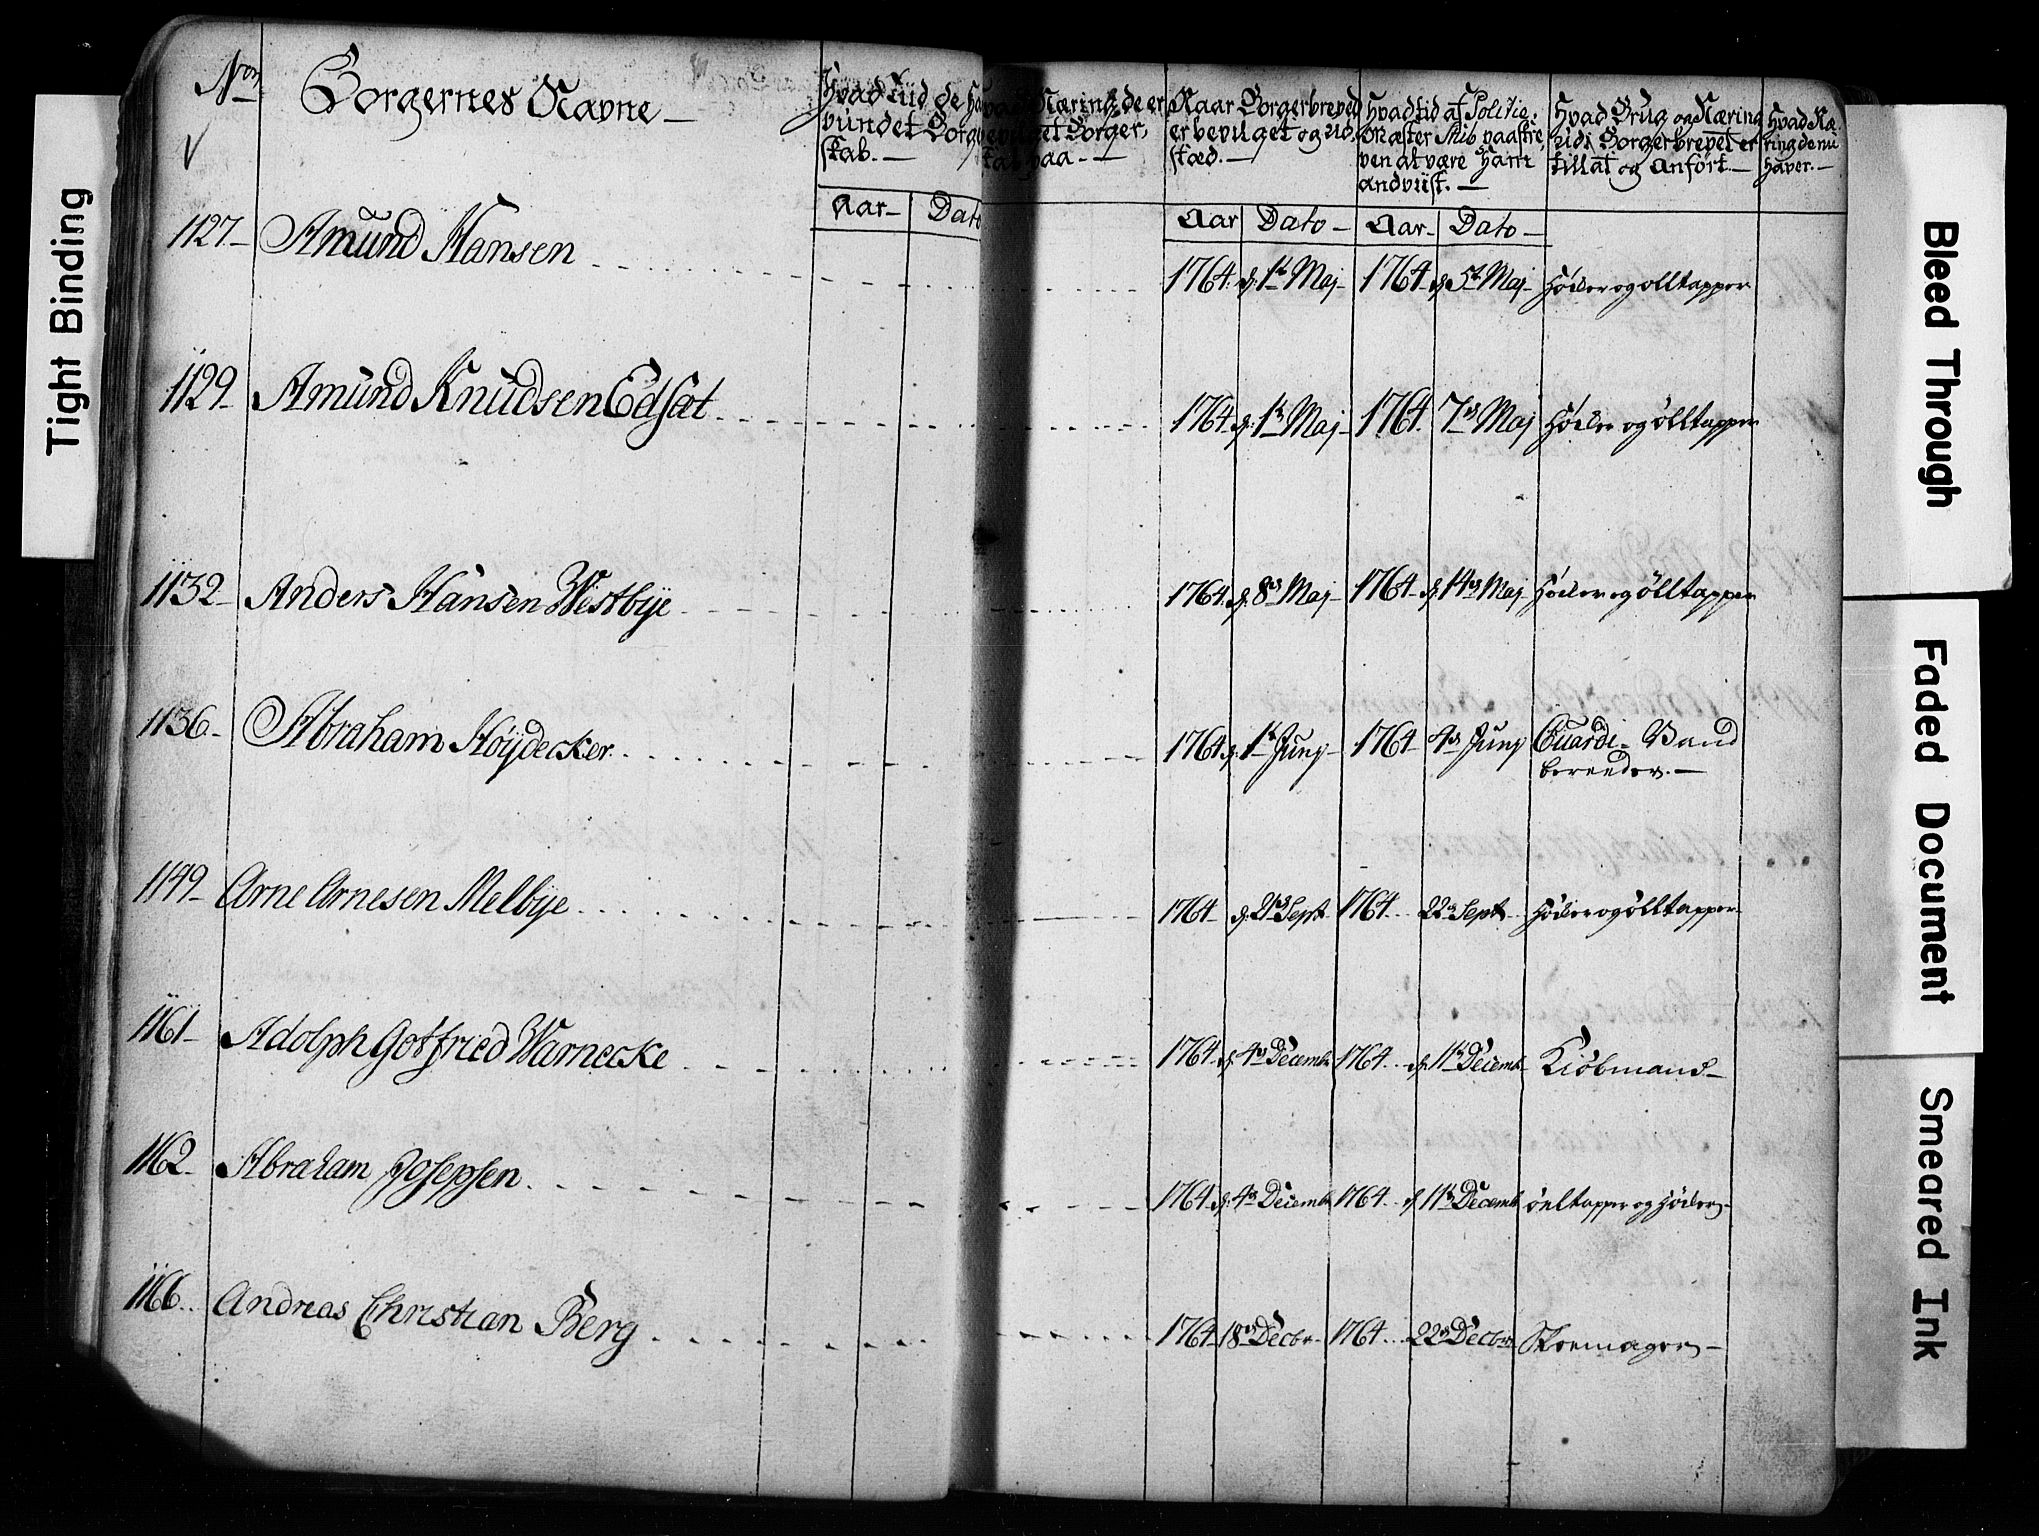 Tight Binding
Bleed Through
Faded Document
Smeared Ink
No
Borgernes Navne –
Hvad Tiid de Ha
vundet Borger
skab. –
Aar – Dato
Hvad Næring de er
bevilget Borger,
skab paa. –
Naar Borgerbrevet
er bevilget og ud,
stæd. –
Aar Dato –
Hvad tid af Politie,
Mæster
ven at være Ham
andviist. –
Aar – Dato –
Hvad Brug og Næring
udi Borgerbrevet er
tillat og Anført. –
Hvad Næ,
ring de nu
haver. –
1127 – Amund Hansen 1764. d. 1te Maj – 1764. d. 5te Maj – Høcker og ølltapper
1129 – Amund Knudsen Edsæt 1764. d. 1te Maj – 1764. 7de Maj Høcker og ølltapper
1132 – Anders Hansen Westbye 1764. d. 8de Maj – 1764 – d. 14de Maj – Høcker og ølltapper
1136 – Abraham Høydecker 1764. d. 1te Juny – 1764 4de Juny Guardi – Vand
bereeder. –
1149 – Arne Arnesen Melbye 1764 – d. 21de Sept – 1764. 22de Sept – Høcker og ølltapper
1161 – Adolph Gotfried Warnecke 1764. d. 4de Decembr 1764. d. 11te Decembr – Kiøbmand –
1162 – Abraham Josepsen 1764. d. 4de Decembr 1764. d. 11te Decembr øeltapper og Høcker –
1166. Andreas Christian Berg 1764 – 18de Decbr – 1764. 22de Decbr – Skoemager –